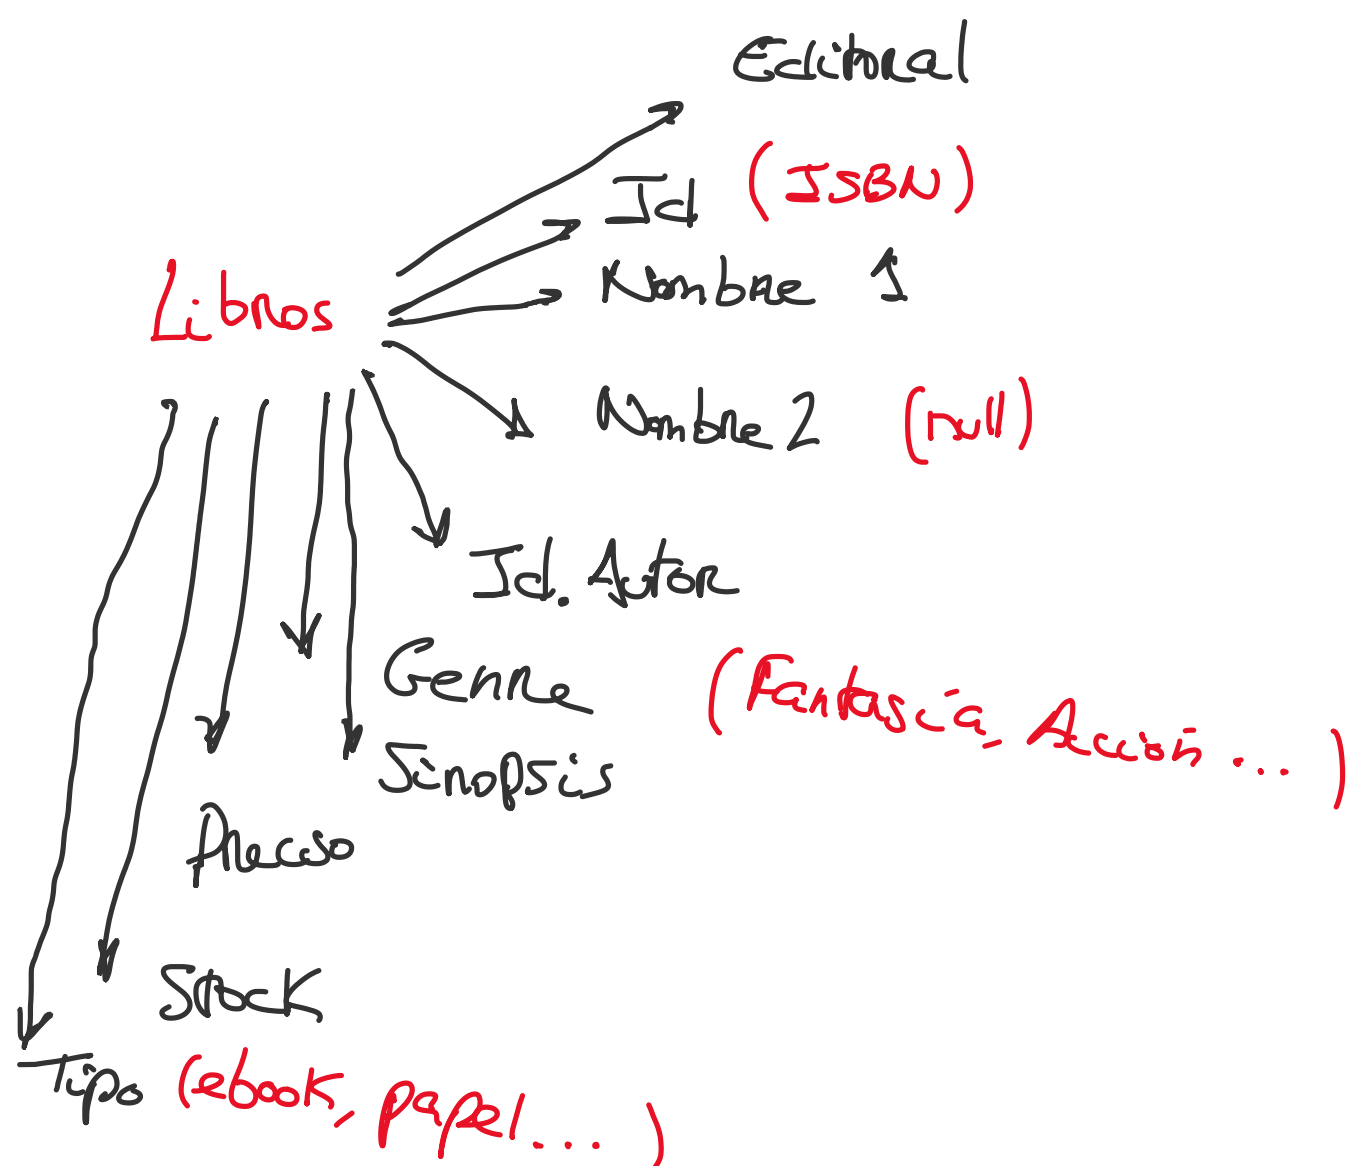 Editorial
Id (ISBN)
Libros
Nombre 1
Nombre 2 (null)
Id. Autor
Genre (Fantasía, Acción ... )
Sinopsis
Precio
Stock
Tipo (ebook, papel .... )